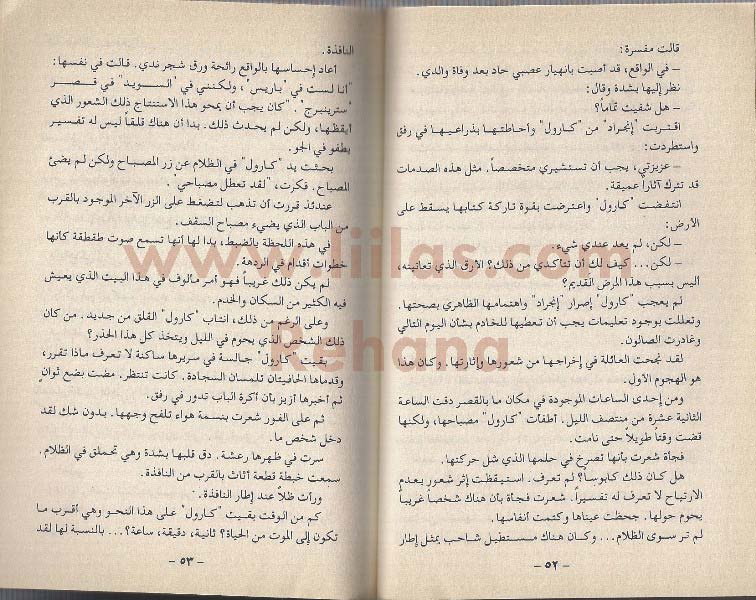 قالت مفسرة:
– في الواقع، قد أصبت بانهيار عصبي حاد بعد وفاة والدي.
نظر إليها بشدة وقال:
– هل شفيت تماماً؟
اقتربت "إنجراد" من "كارول" وأحاطتها بذراعيها في رفق
واستطردت:
– عزيزتي، يجب أن تستشيري متخصصاً. مثل هذه الصدمات
قد تترك آثاراً عميقة.
انتفضت "كارول" واعترضت بقوة تاركة كتابها يسقط على
الأرض:
– لكن، لم يعد عندي شيء.
– لكن... كيف لك أن تتأكدي من ذلك؟ الأرق الذي تعانينه،
أليس بسبب هذا المرض القديم؟
لم يعجب "كارول" إصرار "إنجراد" واهتمامها الظاهري بصحتها.
وتعللت بوجود تعليمات يجب أن تعطيها للخادم بشأن اليوم التالي
وغادرت الصالون.
لقد نجحت العائلة في إخراجها من شعورها وإثارتها. وكان هذا
هو الهجوم الأول.
ومن إحدى الساعات الموجودة في مكان ما بالقصر دقت الساعة
الثانية عشرة من منتصف الليل. أطفأت "كارول" مصباحها، ولكنها
قضت وقتاً طويلاً حتى نامت.
فجأة شعرت بأنها تصرخ في حلمها الذي شل حركتها.
هل كان ذلك كابوسا؟ لم تعرف. استيقظت إثر شعور بعدم
الارتياح لا تعرف له تفسيراً. شعرت فجأة بأن هناك شخصاً غريباً
يحوم حولها. جحظت عيناها وكتمت أنفاسها.
لم تر سوى الظلام... وكان هناك مستطيل شاحب يمثل إطار
– ٥٢ –
النافذة.
أعاد إحساسها بالواقع رائحة ورق شجر ندي. قالت في نفسها:
"أنا لست في "باريس"، ولكنني في "السويد" في قصر
"سترينبرج". "كان يجب أن يمحو هذا الاستنتاج ذلك الشعور الذي
أيقظها، ولكن لم يحدث ذلك. بدا أن هناك قلقاً ليس له تفسير
يطفو في الجو.
بحثت يد "كارول" في الظلام عن زر المصباح ولكن لم يضئ
المصباح. فكرت، "لقد تعطل مصباحي".
عندئذ قررت أن تذهب لتضغط على الزر الآخر الموجود بالقرب
من الباب الذي يضيء مصباح السقف.
في هذه اللحظة بالضبط، بدا لها أنها تسمع صوت طقطقة كأنها
خطوات أقدام في الردهة.
لم يكن ذلك غريباً فهو أمر مألوف في هذا البيت الذي يعيش
فيه الكثير من السكان والخدم.
وعلى الرغم من ذلك، انتاب "كارول" القلق من جديد. من كان
ذلك الشخص الذي يحوم في الليل ويتخذ كل هذا الحذر؟
بقيت "كارول" جالسة في سريرها ساكنة لا تعرف ماذا تقرر،
وقدماها الحافيتان تلمسان السجادة. كانت تنتظر. مضت بضع ثوان
ثم أخبرها أزيز بأن أكرة الباب تدور في رفق.
ثم على الفور شعرت بنسمة هواء تلفح وجهها. بدون شك لقد
دخل شخص ما.
سرت في ظهرها رعشة. دق قلبها بشدة وهي تحملق في الظلام.
سمعت خبطة قطعة أثاث بالقرب من النافذة.
ورأت ظلاً عند إطار النافذة.
كم من الوقت بقيت "كارول" على هذا النحو وهي أقرب ما
تكون إلى الموت من الحياة؟ ثانية، دقيقة، ساعة؟... بالنسبة لها لقد
– ٥٣ –
www.liilas.com
Rehana